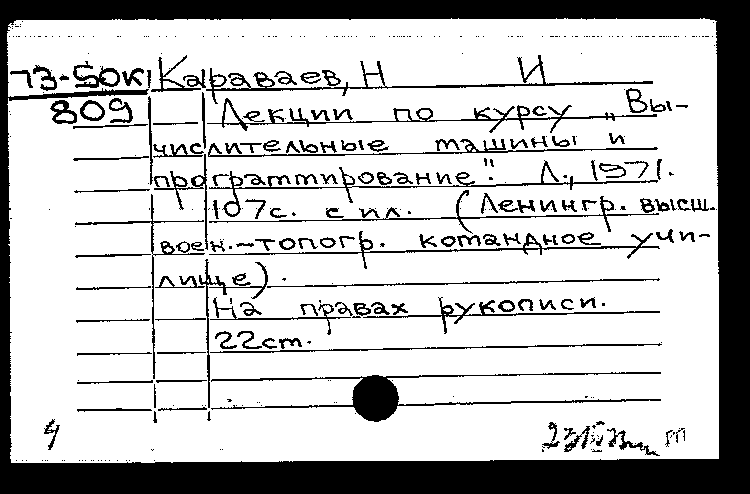 73-50к Караваев, Н И
809 Лекции по курсу „Вы-
числительные машины и
программирование". Л., 1971.
107с. с ил. (Ленингр. высш.
воен.-топогр. командное учи-
лище).
На правах рукописи.
22ст.
4 m